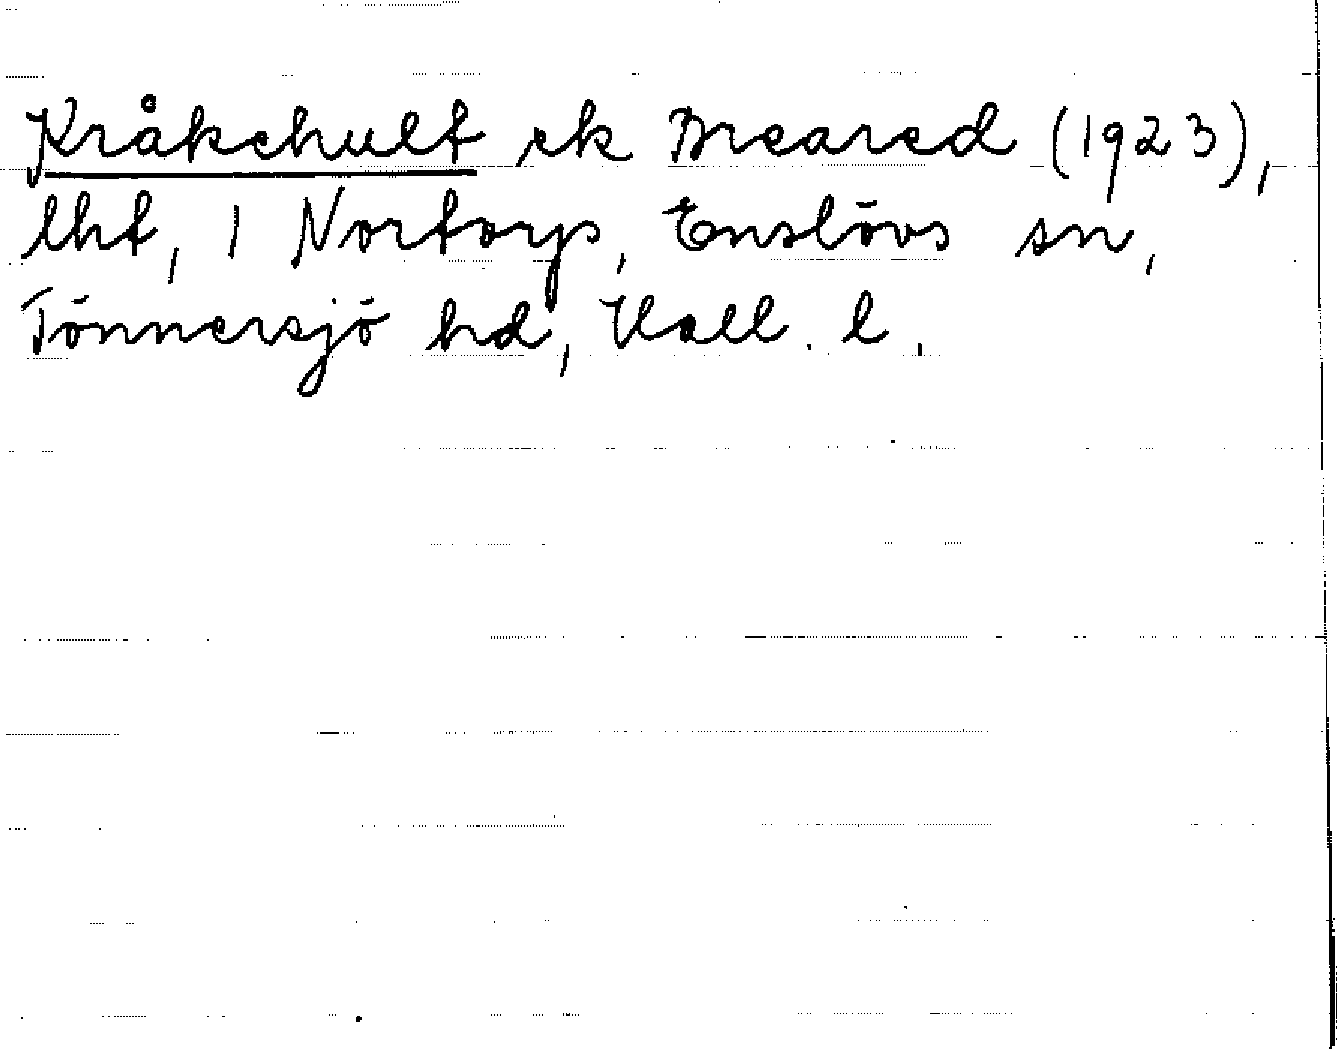 Kråkehult ek Breared (1923),
lht, 1 Nortorps, Enslövs sn,
Tönnersjö hd, Hall. l.